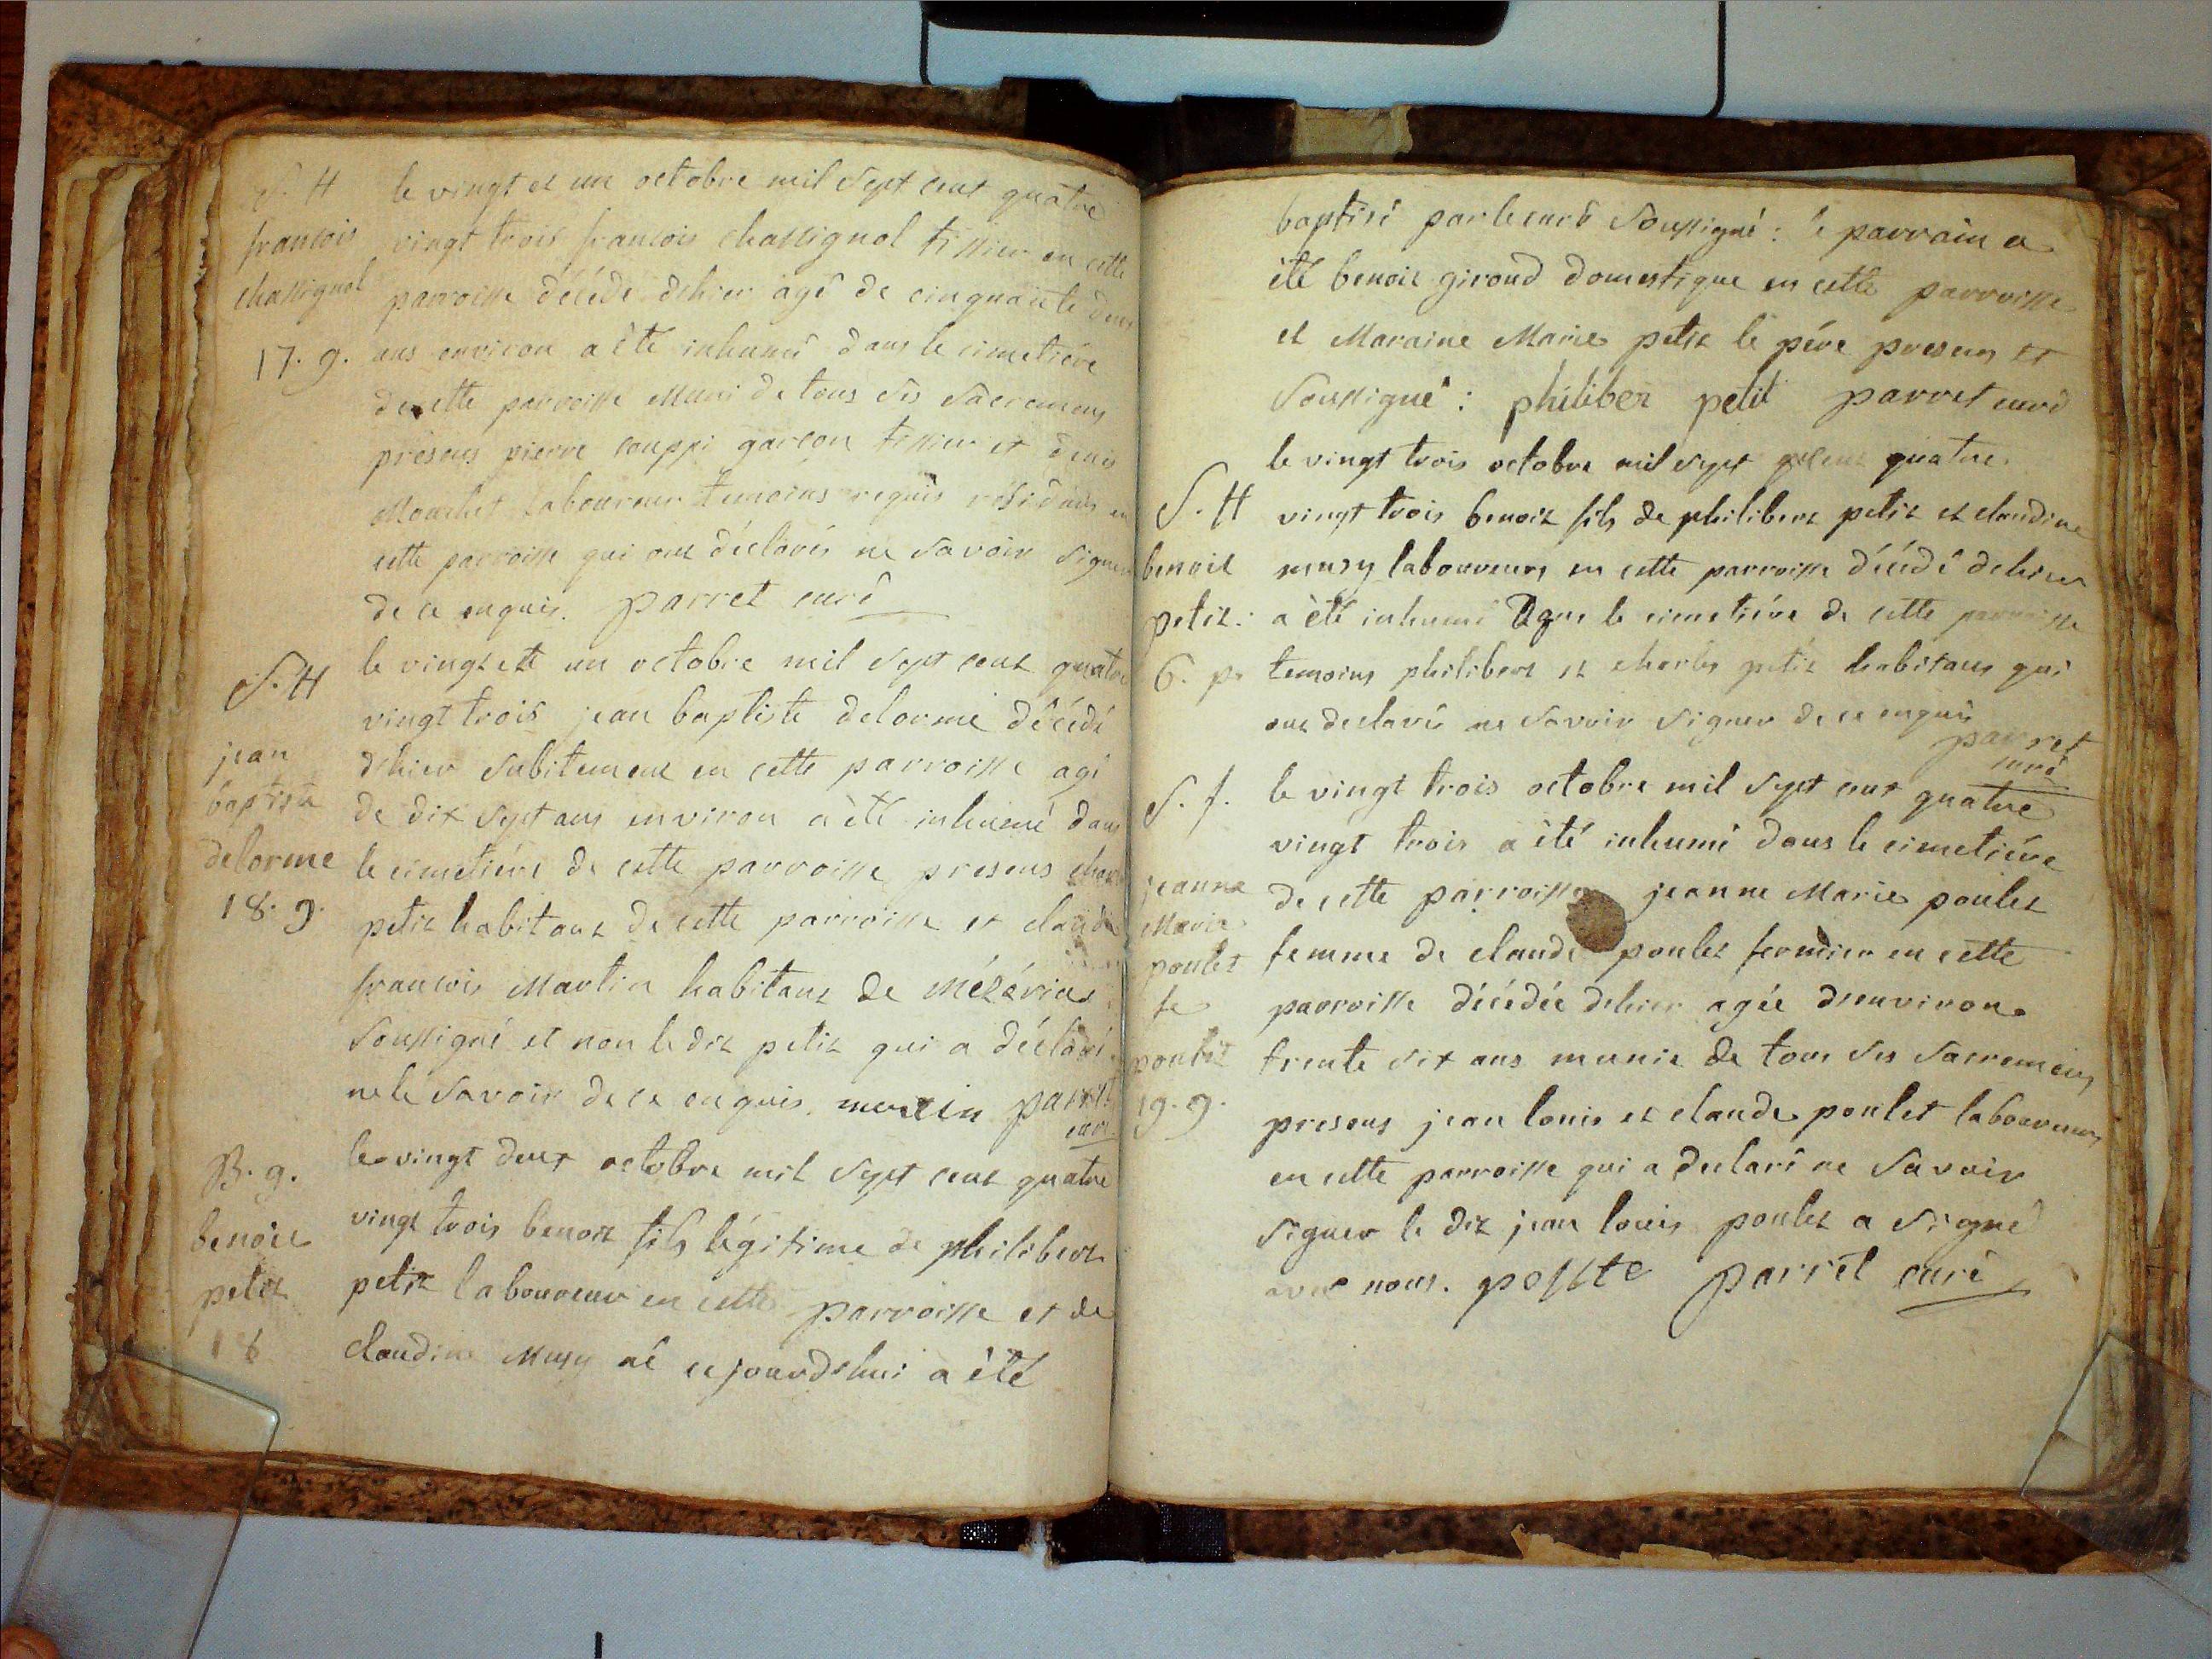 S. H
françois
chassignol
17. g.
le vingt et un octobre mil sept cent quatre
vingt trois françois chassignol tissier en cette
parroisse décédé dehier agé de cinquante deux
ans environ a èté inhumé dans le cimetiére
de cette parroisse muni de tous ses sacremens
présens pierre couppi garcon tissier et denis
laboureur temoins requis résidants en
cette parroisse qui ont déclarés ne savoir signer
de ce enquis. parret curé
S. H
jean
baptiste
delorme
18. g.
le vingt et un octobre mil sept cent quatre
vingt trois jean baptiste delorme décédé
dehier subitement en cette parroisse agé
de dix sept ans environ a èté inhumé dans
le cimetiére de cette parroisse presens
petit habitant de cette parroisse et claude
françois Martin habitant de mézériac
soussigné et non le dit petit qui a déclaré
ne le savoir de ce enquis. martin parret
curé
B. g.
benoit
petit
le vingt deux octobre mil sept cent quatre
vingt trois benoit fils légitime de philibert
petit laboureur en cette parroisse et de
claudine Musy né cejourdehui a èté
baptisé par le curé soussigné : le parrain a
èté benoit giroud domestique en cette parroisse
et Maraine Marie petit le pére present et
soussigné : philiber petit parret curé
S. H
benoit
petit :
6. p.
le vingt trois octobre mil sept cent quatre
vingt trois benoit fils de philibert petit et claudine
musy laboureurs en cette parroisse décédé dehier
a èté inhumé dans le cimetiére de cette parroisse
temoins philibert et charles petit habitans qui
ont declaré ne savoir signer de ce enquis
parret
curé
S. f.
jeanne
Marie
poulet
fe
poulet
19. g.
le vingt trois octobre mil sept cent quatre
vingt trois a èté inhumé dans le cimetiére
de cette parroisse jeanne Marie poulet
femme de claude poulet fermier en cette
parroisse décédée dehier agée denviron
trente six ans munie de tous ses sacremens
presens jean louis et claude poulet laboureurs
en cette parroisse qui a declaré ne savoir
signer le dit jean louis poulet a signé
avec nous. parret curé